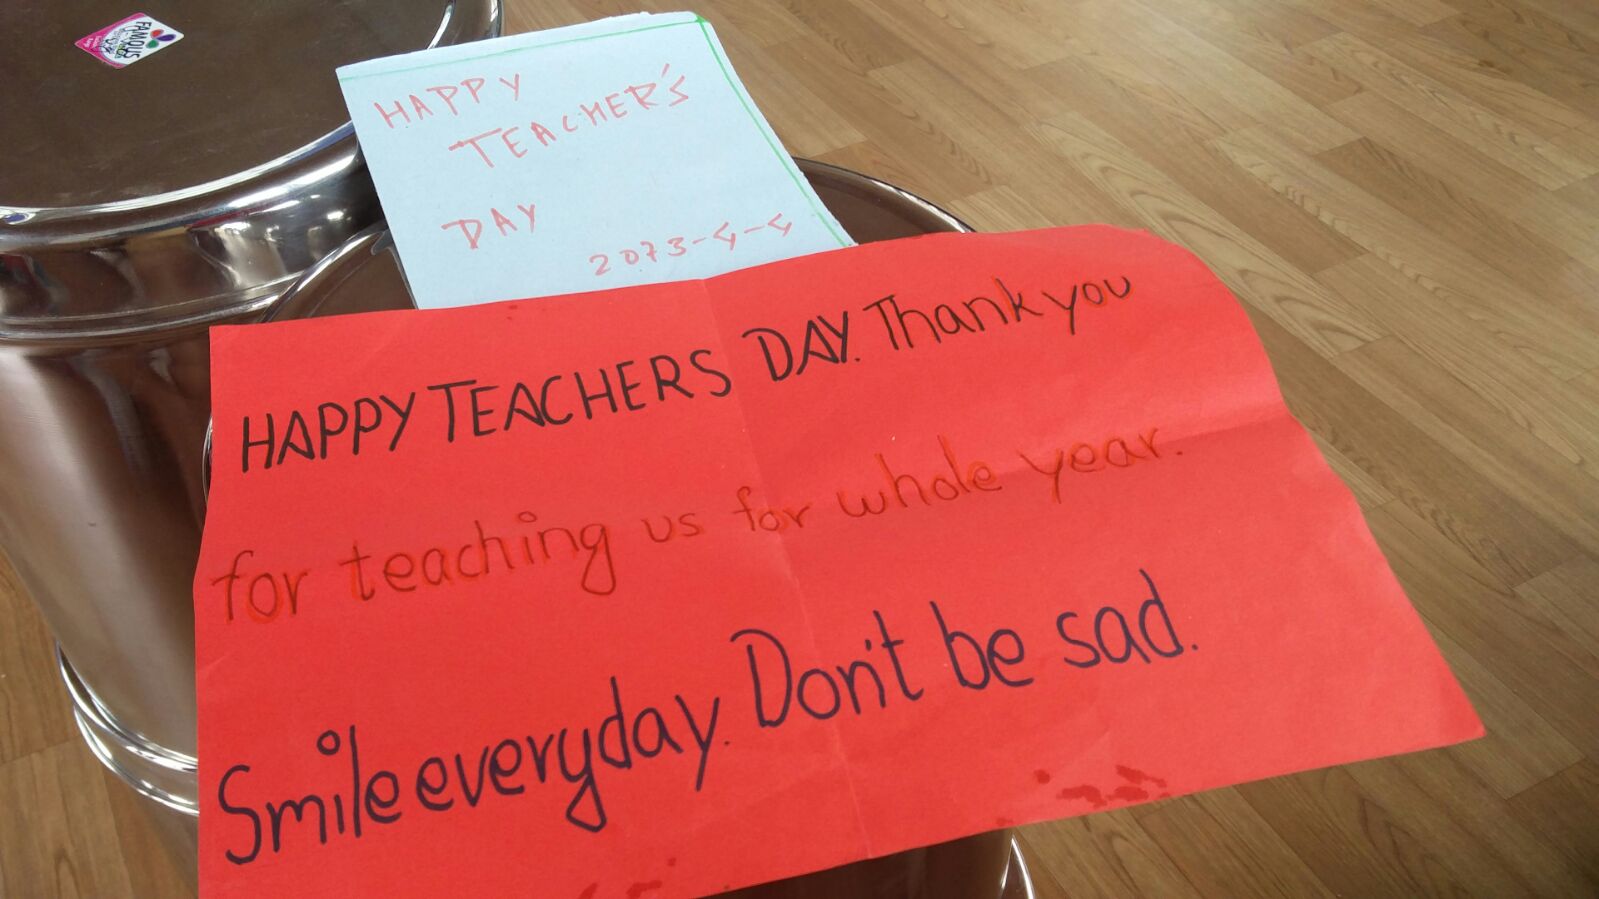 FAMOUS
HAPPY
TEACHER'S
DAY
2073-4-4
HAPPY TEACHERS DAY. Thank you
for teaching us for whole year.
Smile everyday. Don't be sad.